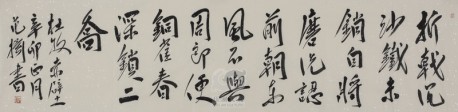 折戟沉
沙鐵未
銷自將
磨洗認
前朝东
風不與
周郎便
銅雀春
深鎖二
喬
杜牧赤壁
辛卯正月
書